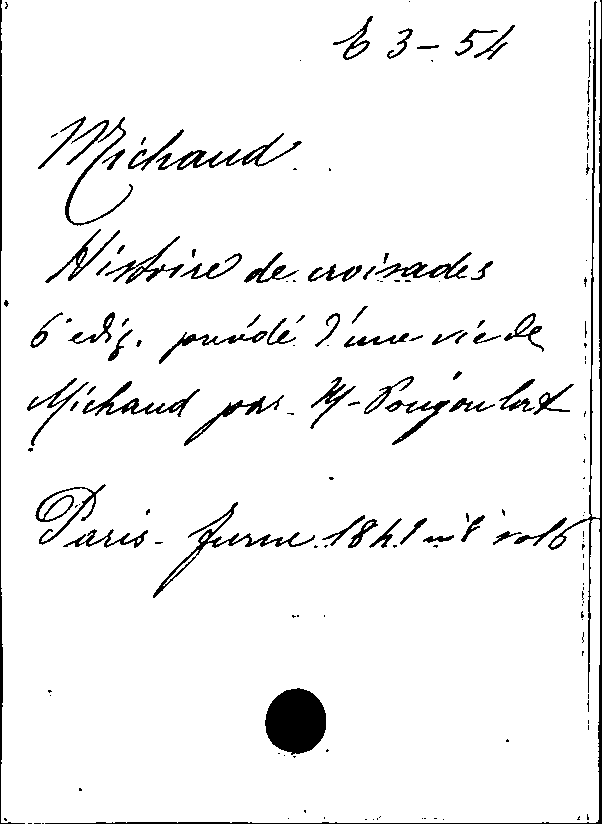 E 3 - 54
Michaud
Histoire de croisades
6° ediz. précédé d'une vie de
Michaud par M- Poujoulat
Paris - Furne 1841 in 8 vol 6